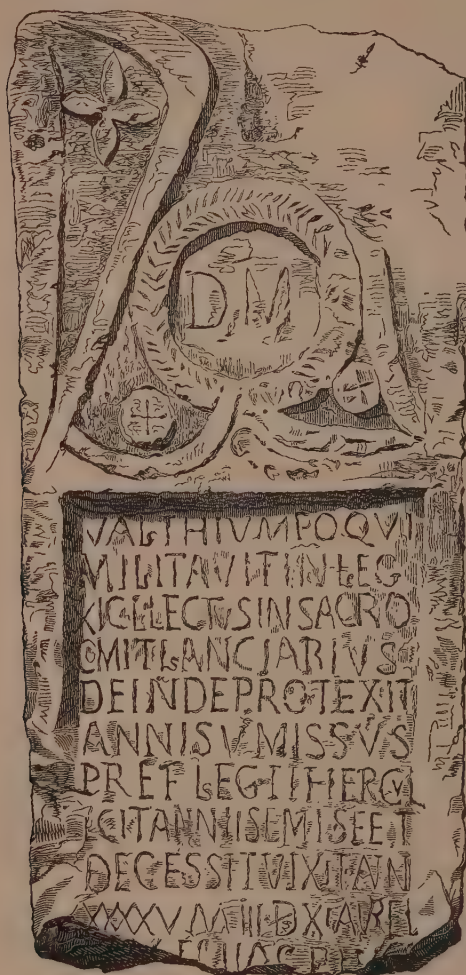 D M
VAL THIVMPO QVI
MILITAVIT IN LEG
XI CL LECTVS IN SACRO
COMIT LANCIARIVS
DEINDE PROTEXIT
ANNIS V MISSVS
PREF LEG II HERCV
ICIT ANN II SEMISE ET
DECESSTI VIXIT AN
XXXXV M III D XI AREL